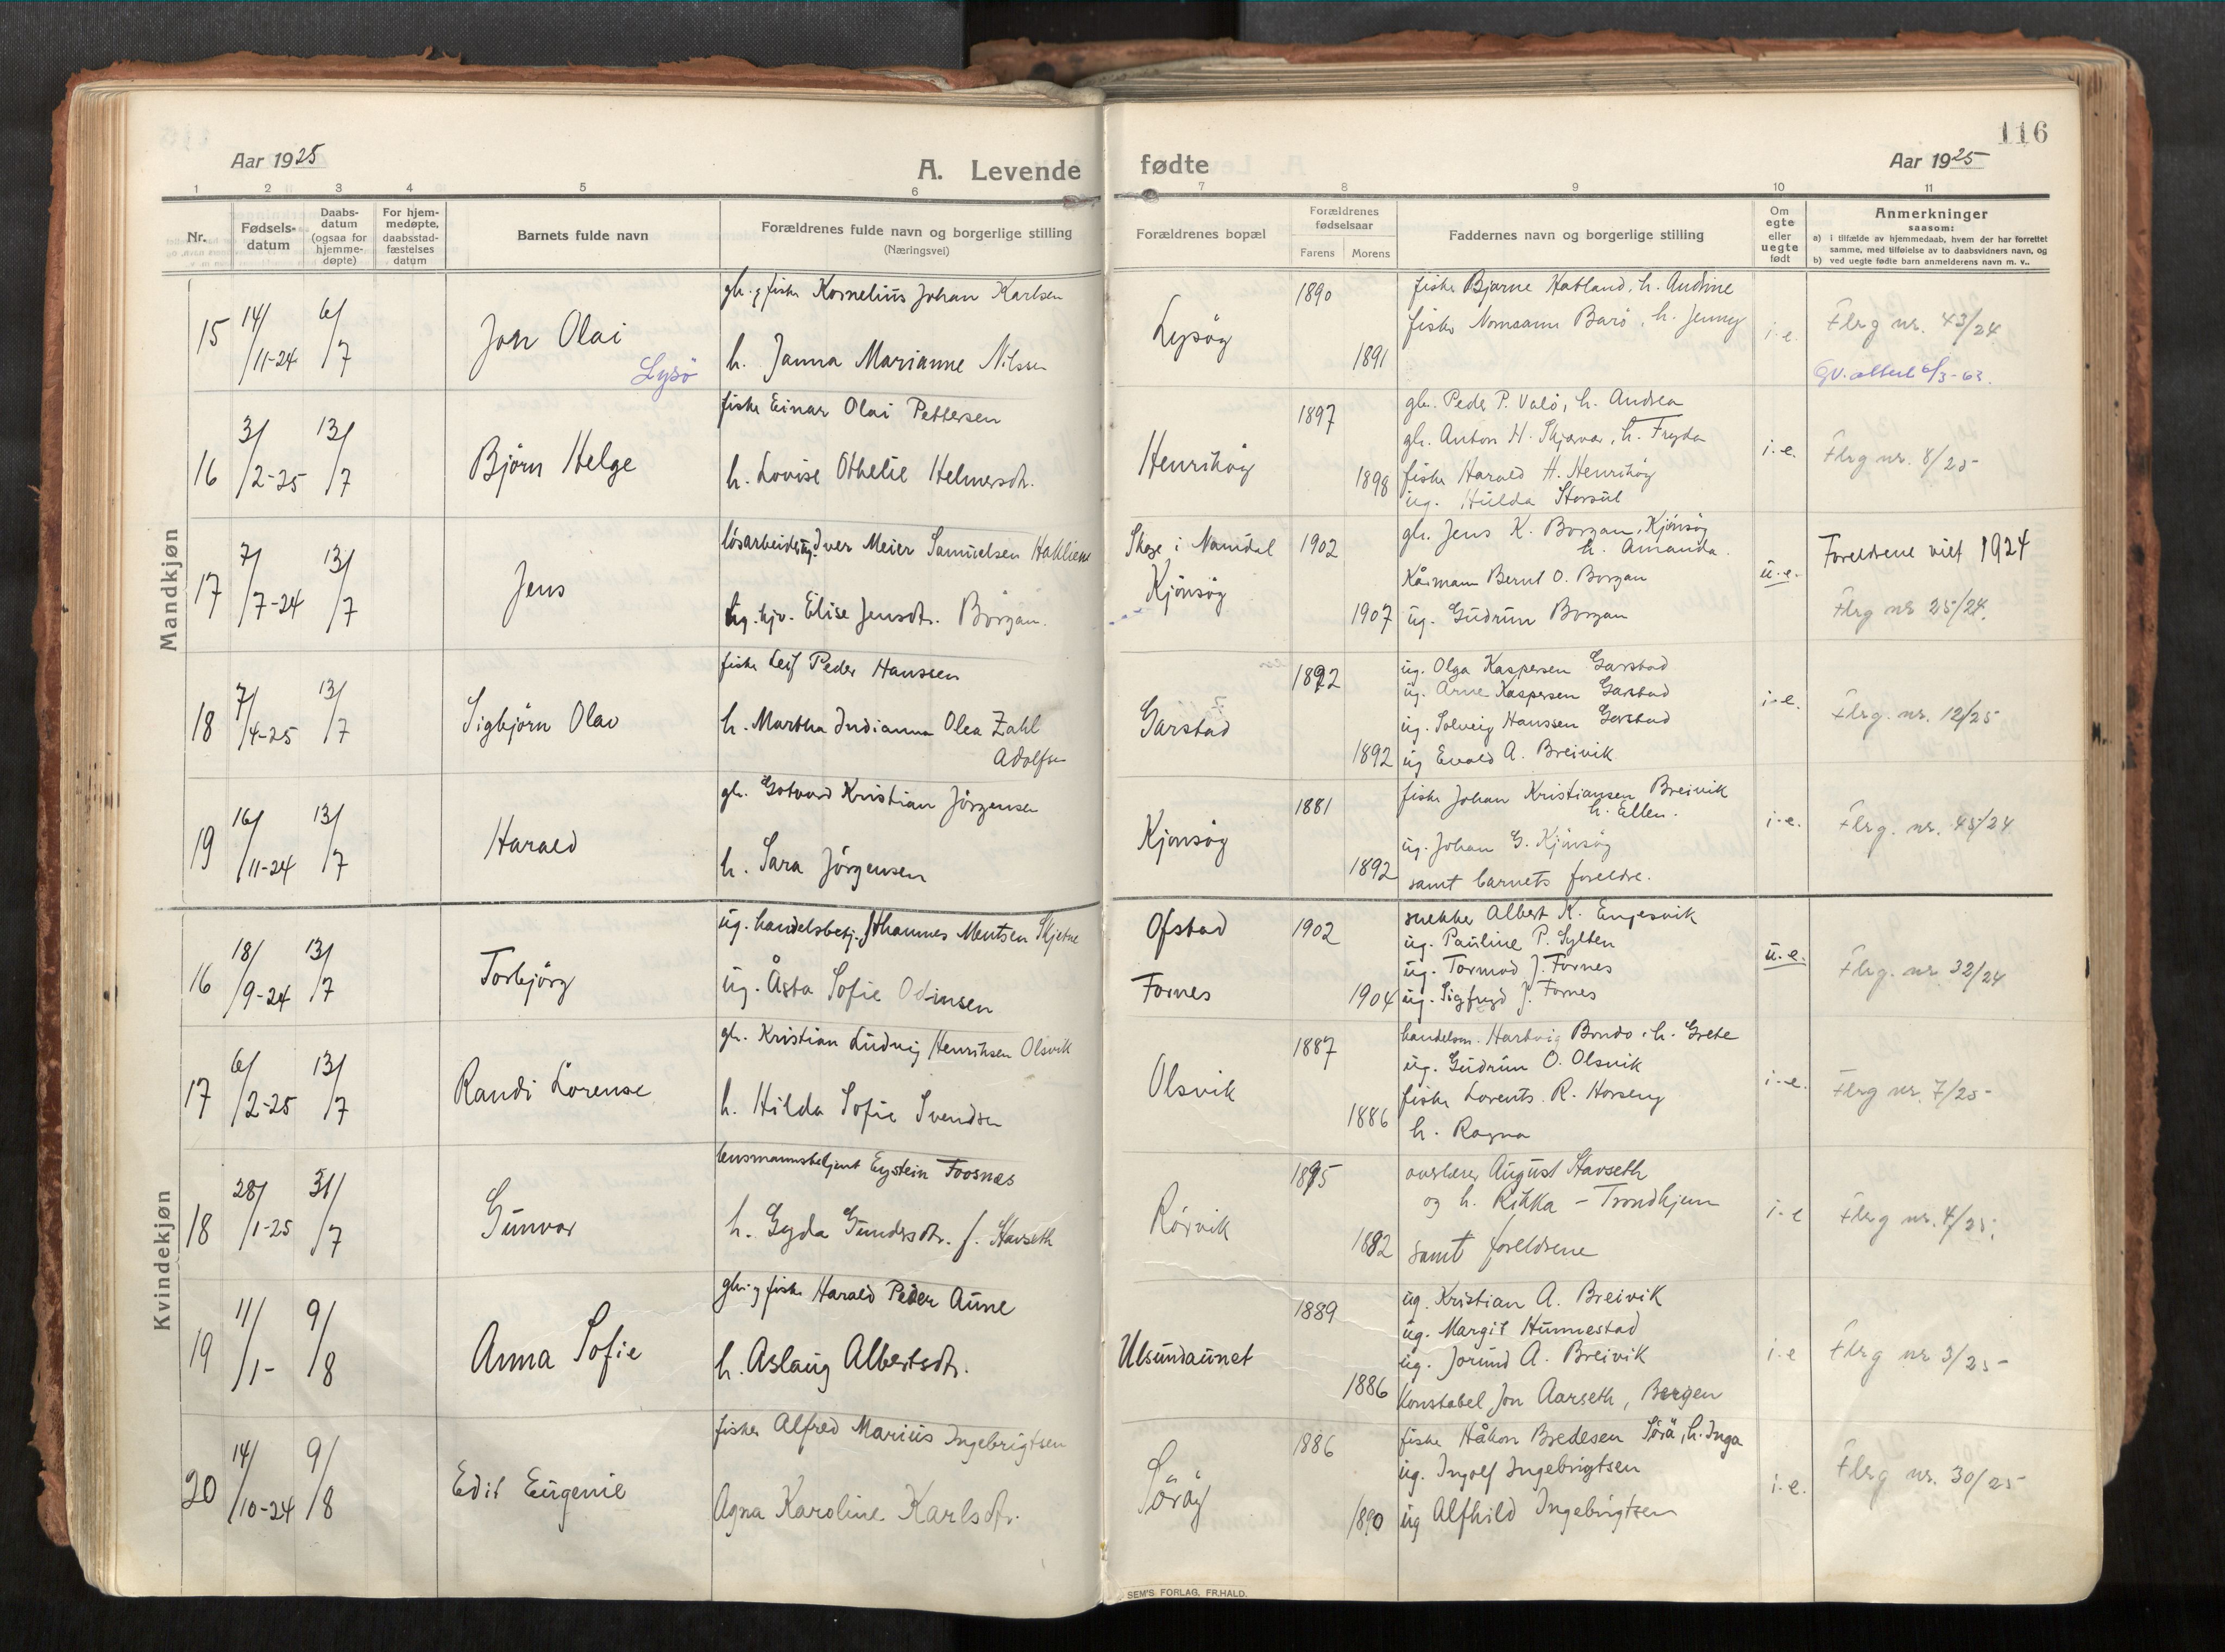 116
Aar 1925
A. Levende
fødte
Aar 1925
1 2 3 4 5 6 7 8 9 10 11
Nr.
Fødsels-
datum
Daabs-
datum
(ogsaa for
hjemme-
døpte)
For hjem-
medøpte,
daabsstad-
fæstelses
datum
Barnets fulde navn
Forældrenes fulde navn og borgerlige stilling
(Næringsvei)
Forældrenes bopæl
Forældrenes
fødselsaar
Farens Morens
Faddernes navn og borgerlige stilling
Om
egte
eller
uegte
født
Anmerkninger
saasom:
a) i tilfælde av hjemmedaab, hvem der har forrettet
samme, med tilføielse av to daabsvidners navn, og
b) ved uegte fødte barn anmelderens navn m. v..
Mandkjøn
15 14/11-24 6/7
Jon Olai
Lysö
gb. og fisker Kornelius Johan Karlsen
h. Janna Marianne Nilssen
Lysög
1890
1891
fisker Bjarne Hatland, h. Andine
fisker Barö, h. Jenny
i.e.
Flrg nr. 43/24
6/3-63.
16 3/2-25 13/7
Björn Helge
fisker Einar Olai Pettersen
h. Lovise Othelie Helmersdt.
Henrihög
1897
1898
gb. Peder P. Valö, h. Andrea
gb. Anton H. Skjavar, h. Fryda
fisker Harald H. Henrihög
ug. Hulda Storsul
i.e.
Flrg nr. 8/25
17 7/7-24 13/7
Jens
lösarbeider ug. Iver Meier Samuelsen Hakliene
ug. hjv. Elise Jensdt. Börgan.
Skage i Namdal
Kjönsög
1902
1907
gb. Jens K. Borgan, Kjönsög
h. Amanda.
Bernt O. Borgan
ug. Gudrun Borgan
u.e.
Foreldrene viet 1924
Flrg nr 25/24.
18 7/4-25 13/7
Sigbjörn Olav
fisker Leif Peder Hanssen
h. Martha Indianna Olea Zahl
Adolfsen
Garstad
1892
1892
ug. Olga Kaspersen Garstad
ug. Arne Kaspersen Garstad
ug. Solveig Hanssen Garstad
ug Evald A. Breivik
i.e.
Flrg. nr. 12/25
19 16/11-24 13/7
Harald
gb. Gotvard Kristian Jörgensen
h. Sara Jörgensen
Kjönsög
1881
1892
fisker Johan Kristiansen Breivik
h. Ellen.
ug. Johan G. Kjönsög
samt barnets foreldre.
i.e.
Flrg. nr. 45/24
Kvindekjøn
16 18/9-24 13/7
Torbjörg
ug. handelsbetj. Johannes Mentsen Skjetne
ug. Åsta Sofie Odinsen
Ofstad
Fornes
1902
1904
snekker Albert K. Engesvik
ug. Pauline P. Sylten
ug. Tormod J. Fornes
ug. Sigfryd J. Fornes
u.e.
Flrg. nr 32/24
17 6/2-25 13/7
Randi Lorense
gb. Kristian Ludvig Henriksen Olsvik
h. Hilda Sofie Svendsen
Olsvik
1887
1886
handelsm. Hartvig Bondo, h. Grete
ug. Gudrun O. Olsvik
fisker Lorents R. Horseng
h. Ragna
i.e.
Flrg nr. 7/25
18 28/1-25 31/7
Gunvor
lensmannsbetjent Eystein Foosnæs
h. Gyda Gundersdt. f. Stavseth
Rörvik
1895
1892
overlærer August Stavseth
og h. Rikka - Trondhjem
samt foreldrene
i.e
Flrg nr. 4/25.
19 11/1- 9/8
Anna Sofie
gb. og fisker Harald Peder Aune
h. Aslaug Albertsdt.
Ulsundaunet
1889
1886
ug. Kristian A. Breivik
ug. Margit Hunnestad
ug. Jorund A. Breivik
Konstabel Jon Aarseth, Bergen
i.e
Flrg nr 3/25
20 14/10-24 9/8
Edit Eugenie
fisker Alfred Marius Ingebrigtsen
Agna Karoline Karlsdt.
Söröy
1886
1890
fisker Håkon Bredesen Sörä, h. Inga
ug. Ingolf Ingebrigtsen
ug Alfhild Ingebrigtsen
i.e.
Flrg nr. 30/25
SEM'S FORLAG, FR.HALD.